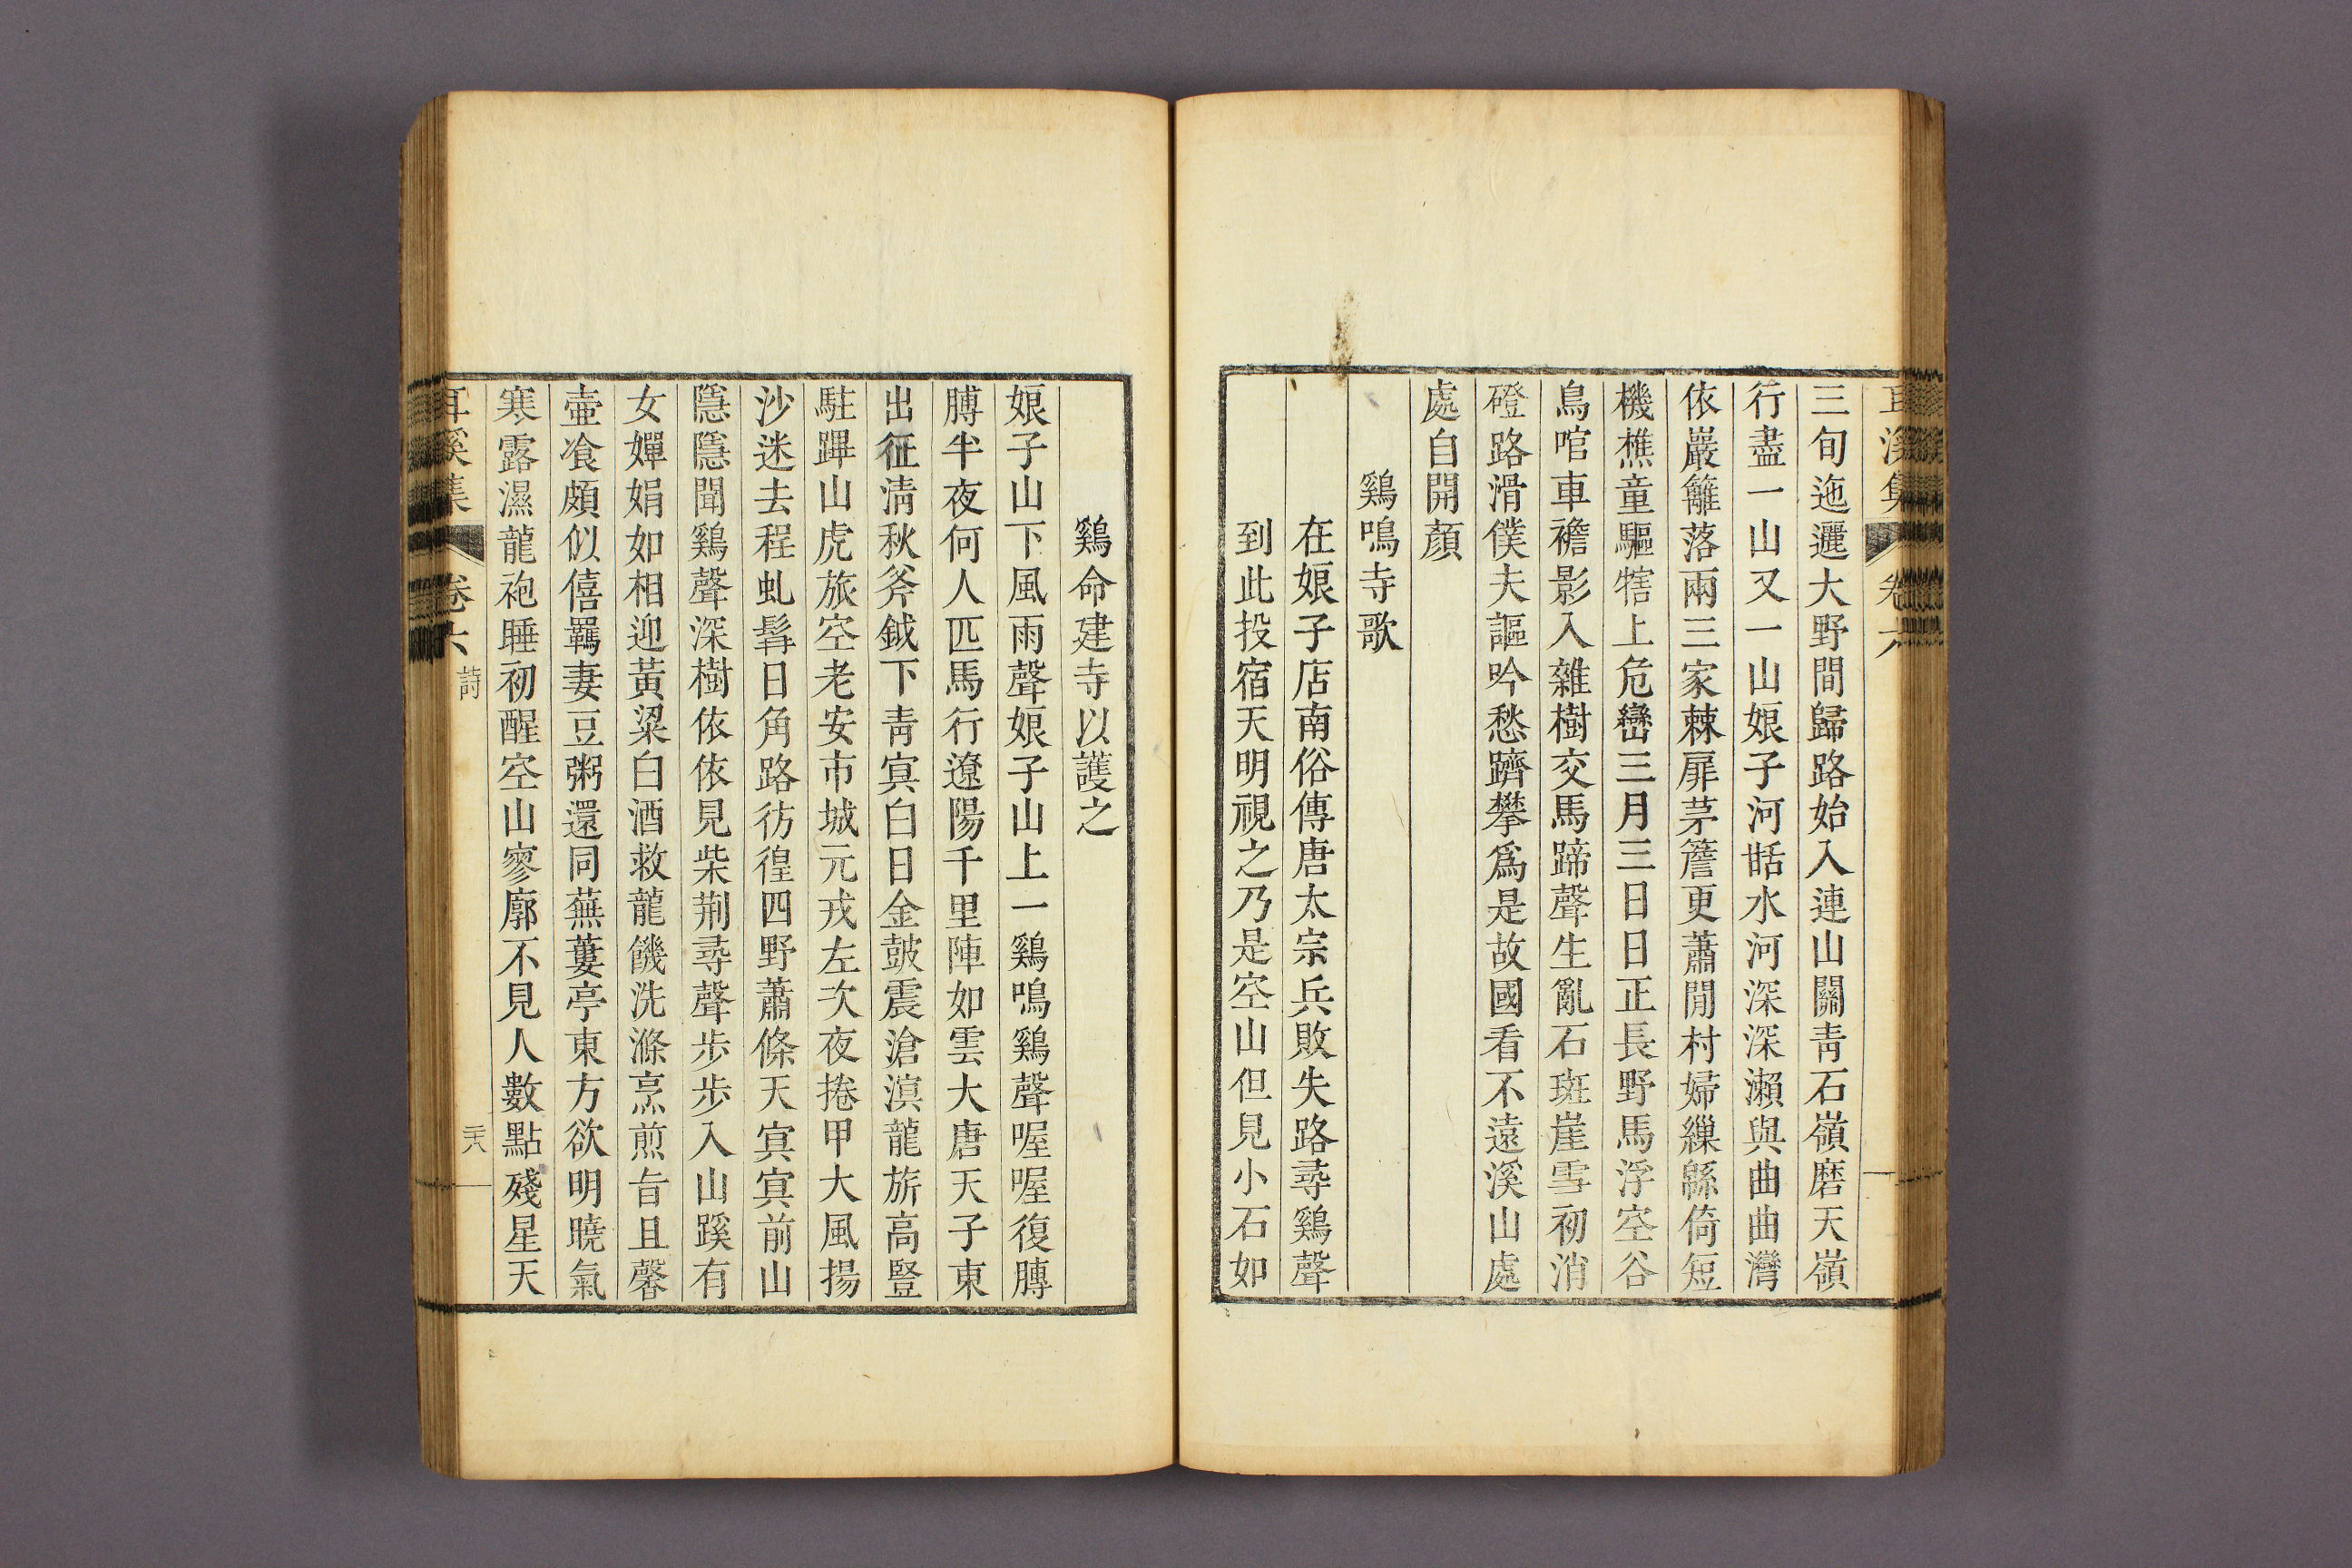 耳溪集 卷六
三旬迤邐大野間歸路始入連山關靑石嶺磨天嶺
行盡一山又一山娘子河甛水河深深瀨與曲曲灣
依巖籬落兩三家棘扉茅簷更蕭閒村婦繅繇倚短
機樵童驅犗上危巒三月三日日正長野馬浮空谷
鳥喧車襜影入雜樹交馬蹄聲生亂石斑崖雪初消
磴路滑僕夫謳吟愁躋攀爲是故國看不遠溪山處
處自開顏
鷄鳴寺歌
在娘子店南俗傳唐太宗兵敗失路尋鷄聲
到此投宿天明視之乃是空山但見小石如
鷄命建寺以護之
娘子山下風雨聲娘子山上一鷄鳴鷄聲喔喔復膊
膊半夜何人匹馬行遼陽千里陣如雲大唐天子東
出征淸秋斧鉞下靑冥白日金鼓震滄溟龍旂高豎
駐蹕山虎旅空老安市城元戎左次夜捲甲大風揚
沙迷去程虬髥日角路彷徨四野蕭條天冥冥前山
隱隱聞鷄聲深樹依依見柴荆尋聲步步入山蹊有
女嬋娟如相迎黃粱白酒救龍饑洗滌烹煎旨且馨
壷飡頗似僖羈妻豆粥還同蕪蔞亭東方欲明曉氣
寒露濕龍袍睡初醒空山寥廓不見人數點殘星天
耳溪集 卷六 詩 二十八